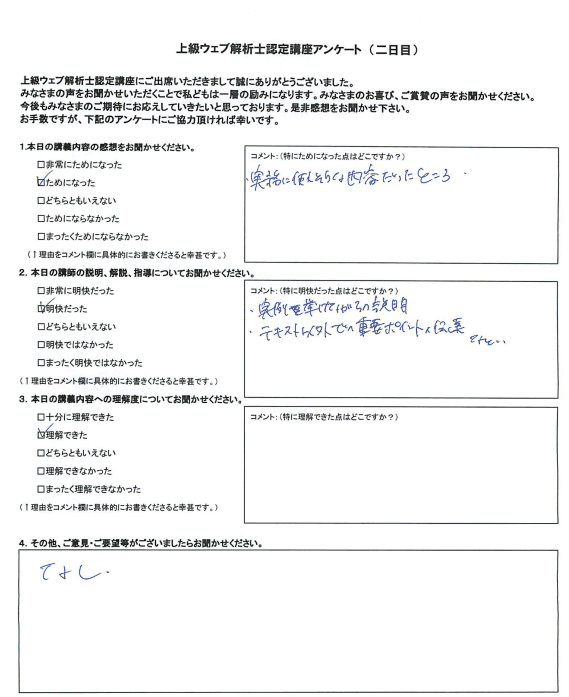 上級ウェブ解析士認定講座アンケート（二日目）
上級ウェブ解析士認定講座にご出席いただきまして誠にありがとうございました。
みなさまの声をお聞かせいただくことで私どもは一層の励みになります。みなさまのお喜び、ご賞賛の声をお聞かせください。
今後もみなさまのご期待にお応えしていきたいと思っております。是非感想をお聞かせ下さい。
お手数ですが、下記のアンケートにご協力頂ければ幸いです。
1.本日の講義内容の感想をお聞かせください。
□非常にためになった
☑ためになった
□どちらともいえない
□ためにならなかった
□まったくためにならなかった
（↑理由をコメント欄に具体的にお書きくださると幸甚です。）
コメント：（特にためになった点はどこですか？）
・実務に使えそうな内容だったところ.
2. 本日の講師の説明、解説、指導についてお聞かせください。
□非常に明快だった
☑明快だった
□どちらともいえない
□明快ではなかった
□まったく明快ではなかった
（↑理由をコメント欄に具体的にお書きくださると幸甚です。）
コメント：（特に明快だった点はどこですか？）
・実例を挙げながらの説明
・テキスト以外での重要ポイント
3. 本日の講義内容への理解度についてお聞かせください。
□十分に理解できた
☑理解できた
□どちらともいえない
□理解できなかった
□まったく理解できなかった
（↑理由をコメント欄に具体的にお書きくださると幸甚です。）
コメント：（特に理解できた点はどこですか？）
4. その他、ご意見・ご要望等がございましたらお聞かせください。
なし.